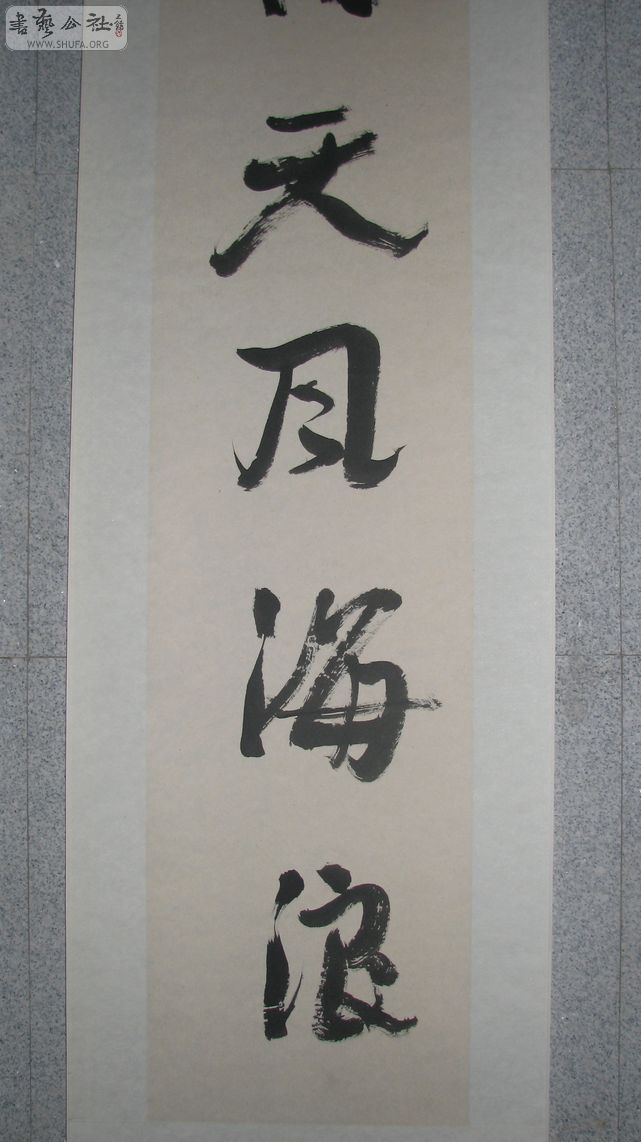 書藝公社
WWW.SHUFA.ORG
天风海浪